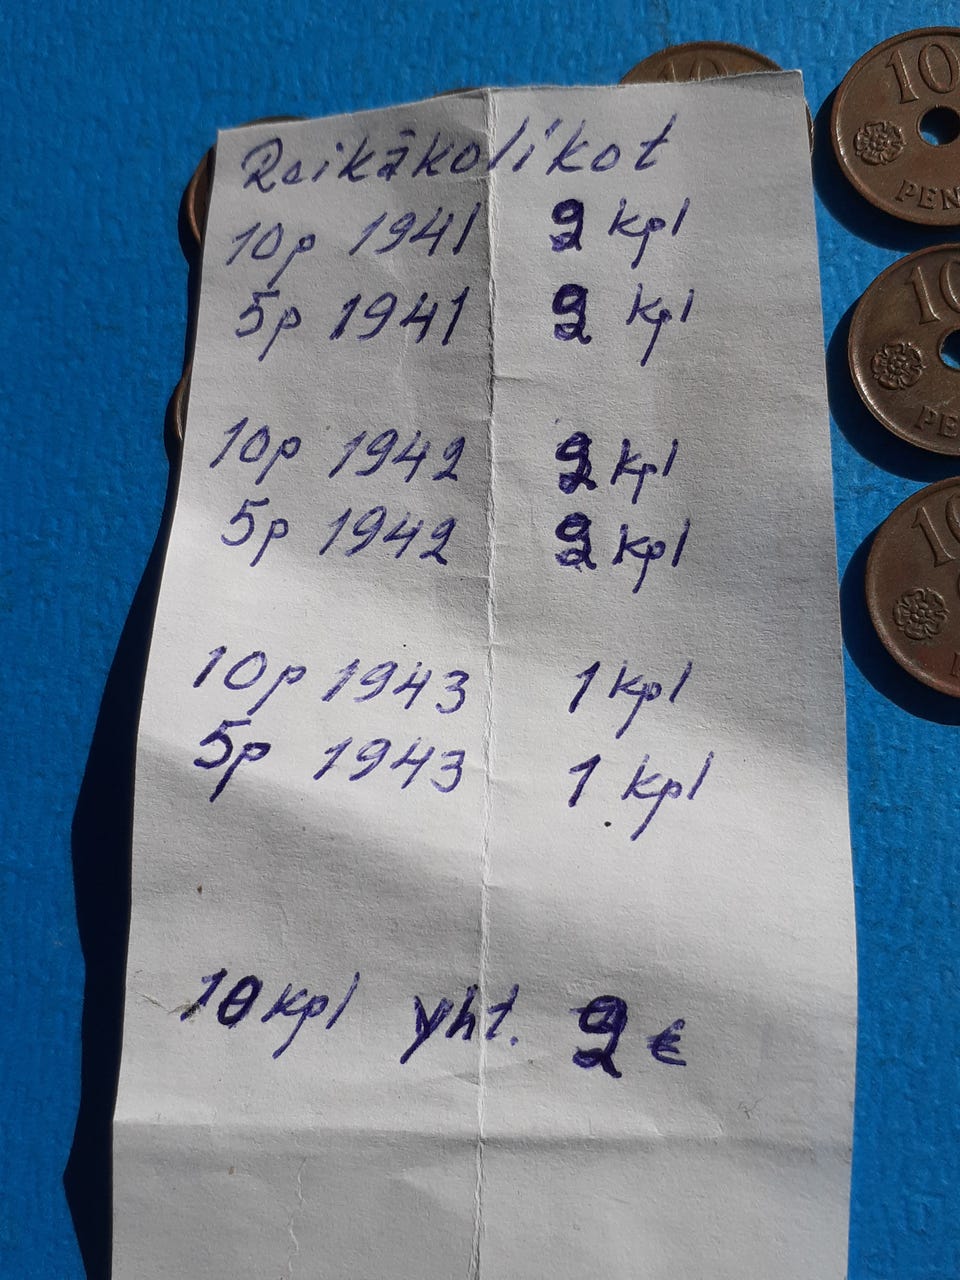 Reikäkolikot
10p 1941 2 kpl
5p 1941 2 kpl
10p 1942 2 kpl
5p 1942 2 kpl
10p 1943 1 kpl
5p 1943 1 kpl
10 kpl yht. 2 €
10
10
PEN
10
PE
10